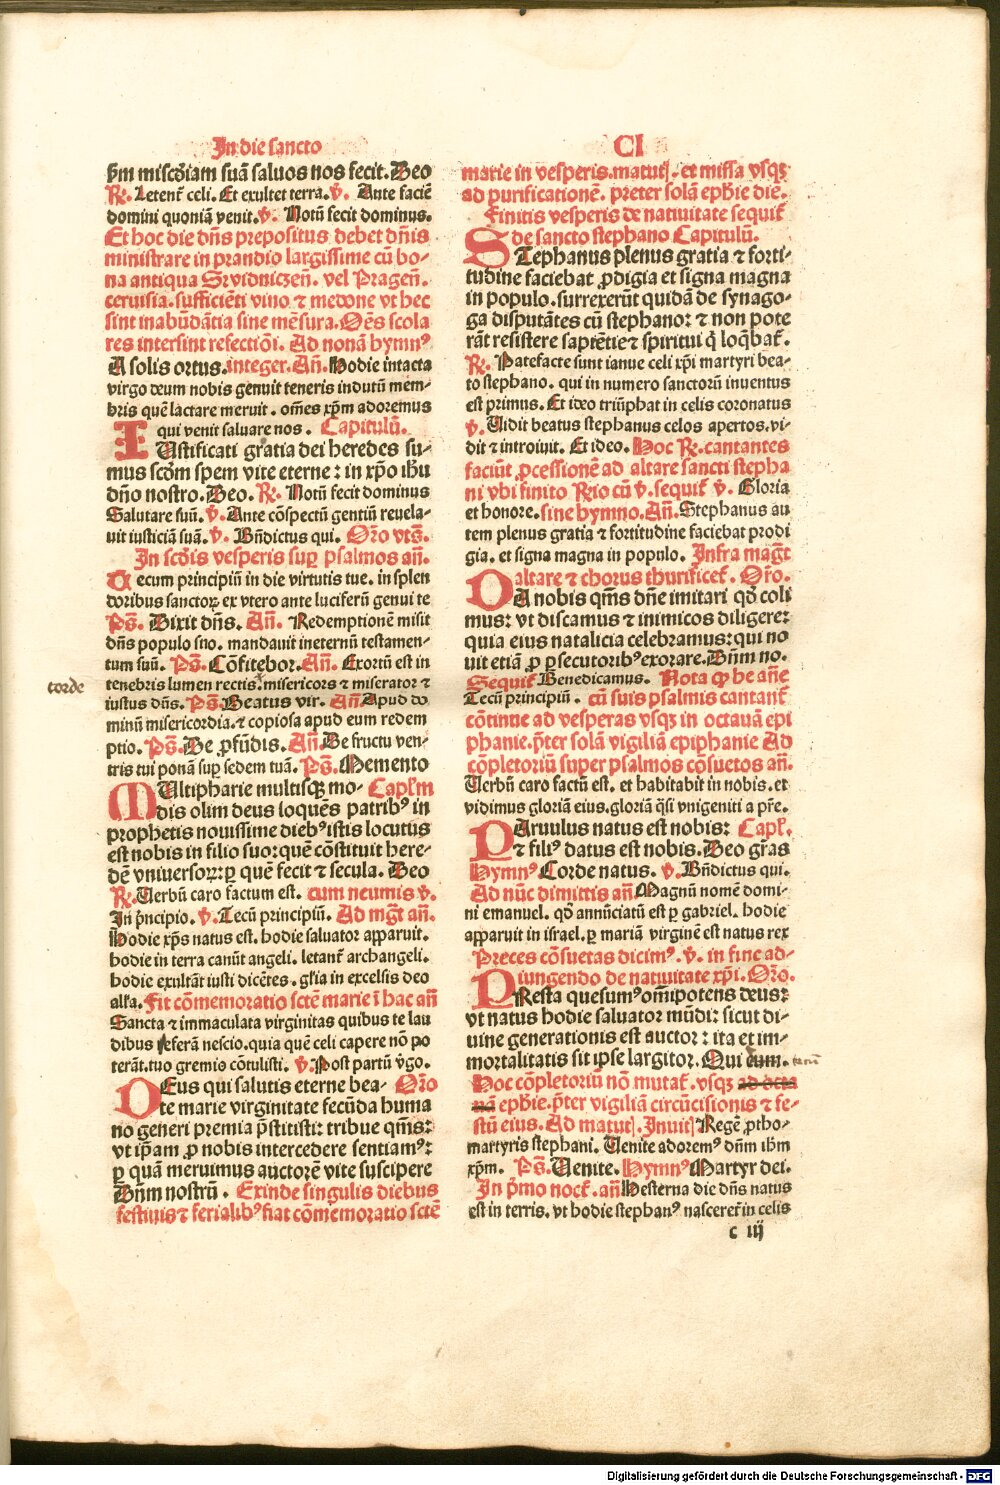 In die sancto
ẜm misc̄diam suā saluos nos fecit. Deo
R̷. Letent᷑ celi. Et exultet terra. v̄. Ante faciē
domini quoniā venit. v̄. Notū fecit dominus.
Et hoc die dn̄s prepositus debet dn̄is
ministrare in prandio largissime cū bo-
na antiqua Srvidniczen̄. vel Pragen̄.
ceruisia. sufficiēti vino ⁊ medone vt hec
sint inabūdātia sine mēsura. Oēs scola
res intersint refectiōi. Ad nonā hymnꝰ
A solis ortus. integer. An̄. Hodie intacta
virgo deum nobis genuit teneris indutū mem-
bris quē lactare meruit. om̄es xp̄m adoremus
qui venit saluare nos. Capitulū.
IUstificati gratia dei heredes su-
mus sc̄dm spem vite eterne: in xp̄o ih̄u
dn̄o nostro. Deo. R̷. Notū fecit dominus
Salutare suū. v̄. Ante cōspectū gentiū reuela-
uit iusticiā suā. v̄. Bn̄dictus qui. Or̄o vts̄.
In sc̄dis vesperis suꝑ psalmos an̄.
Tecum principiū in die virtutis tue. in splen
doribus sanctoꝝ ex vtero ante luciferū genui te
Ps̄. Dixit dn̄s. An̄. Redemptionē misit
dn̄s populo suo. mandauit ineternū testamen-
tum suū. Ps̄. Cōfitebor. An̄. Exortū est in
tenebris lumen rectis. misericors ⁊ miserator ⁊
corde
iustus dn̄s. Ps̄. Beatus vir. An̄. Apud do
minū misericordia. ⁊ copiosa apud eum redem
ptio. Ps̄. De ꝓfūdis. An̄. De fructu ven-
tris tui ponā suꝑ sedem tuā. Ps̄. Memento
MUltipharie multisqꝫ mo- Capl̄m
dis olim deus loquēs patribꝰ in
prophetis nouissime diebꝰ istis locutus
est nobis in filio suo: quē cōstituit here-
dē vniuersoꝝ: ꝑ quē fecit ⁊ secula. Deo
R̷. Verbū caro factum est. cum neumis v̄.
In pͥncipio. v̄. Tecū principiū. Ad mgt̄ an̄.
Hodie xp̄s natus est. hodie saluator apparuit.
hodie in terra canūt angeli. letant᷑ archangeli.
hodie exultāt iusti dicētes. gl̄ia in excelsis deo
alla. Fit cōmemoratio sctē marie ī hac an̄
Sancta ⁊ immaculata virginitas quibus te lau
dibus referā nescio. quia quē celi capere nō po
terāt. tuo gremio cōtulisti. v̄. Post partū v̄go.
DEus qui salutis eterne bea- Or̄o
te marie virginitate fecūda huma
no generi premia p̄stitisti: tribue qm̄s:
vt ip̄am ꝓ nobis intercedere sentiamꝰ:
ꝑ quā meruimus auctorē vite suscipere
Dn̄m nostrū. Exinde singulis diebus
festiuis ⁊ ferialibꝰ fiat cōmemoratio sctē
CI
marie in vesperis. matutꝭ. et missa vsqꝫ
ad purificationē. preter solā eph̄ie diē.
Finitis vesperis de natiuitate sequit᷑
de sancto stephano Capitulū.
STephanus plenus gratia ⁊ forti-
tudine faciebat ꝓdigia et signa magna
in populo. surrexerūt quidā de synago-
ga disputātes cū stephano: ⁊ non pote
rāt resistere sapiētie ⁊ spiritui q̄ loq̄bat᷑.
R̷. Patefacte sunt ianue celi xp̄i martyri bea-
to stephano. qui in numero sanctorū inuentus
est primus. Et ideo triūphat in celis coronatus
v̄. Vidit beatus stephanus celos apertos. vi-
dit ⁊ introiuit. Et ideo. Hoc R̷. cantantes
faciūt ꝓcessionē ad altare sancti stepha
ni vbi finito R̷io cū v̄. sequit᷑ v̄. Gloria
et honore. sine hymno. An̄. Stephanus au
tem plenus gratia ⁊ fortitudine faciebat prodi
gia. et signa magna in populo. Infra magt̄
altare ⁊ chorus thurificet᷑. Or̄o.
DA nobis qm̄s dn̄e imitari qd̄ coli
mus: vt discamus ⁊ inimicos diligere:
quia eius natalicia celebramus: qui no
uit etiā ꝓ ꝑsecutoribꝰ exorare. Dn̄m no.
Sequit᷑ Benedicamus. Nota ꝙ he an̄e
Tecū principiū. cū suis psalmis cantant᷑
cōtinue ad vesperas vsqꝫ in octauā epi
phanie. p̄ter solā vigiliā epiphanie Ad
cōpletoriū super psalmos cōsuetos an̄.
Verbū caro factū est. et habitabit in nobis. et
vidimus gloriā eius. gloriā q̄si vnigeniti a pr̄e.
PAruulus natus est nobis: Capl᷑.
⁊ filiꝰ datus est nobis. Deo gr̄as
Hymnꝰ Corde natus. v̄. Bn̄dictus qui.
Ad nūc dimittis an̄. Magnū nomē domi-
ni emanuel. qd̄ annūciatū est ꝑ gabriel. hodie
apparuit in israel. ꝑ mariā virginē est natus rex
Preces cōsuetas dicimꝰ. v̄. in fine ad-
iungendo de natiuitate xp̄i. Or̄o.
PResta quesumꝰ om̄ipotens deus:
vt natus hodie saluator mūdi: sicut di-
uine generationis est auctor: ita et im-
mortalitatis sit ipse largitor. Qui cum.
Hoc cōpletoriū nō mutat᷑. vsqꝫ ad octa
nā eph̄ie. p̄ter vigiliā circūcisionis ⁊ fe-
stū eius. Ad matutꝭ. Inuitꝭ Regē ꝓtho-
martyris stephani. Venite adoremꝰ dn̄m ih̄m
xp̄m. Ps̄. Venite. Hymnꝰ Martyr dei.
In pͥmo noct᷑. an̄ Hesterna die dn̄s natus
est in terris. vt hodie stephanꝰ nasceret᷑ in celis
c iij
Digitalisierung gefördert durch die Deutsche Forschungsgemeinschaft - DFG